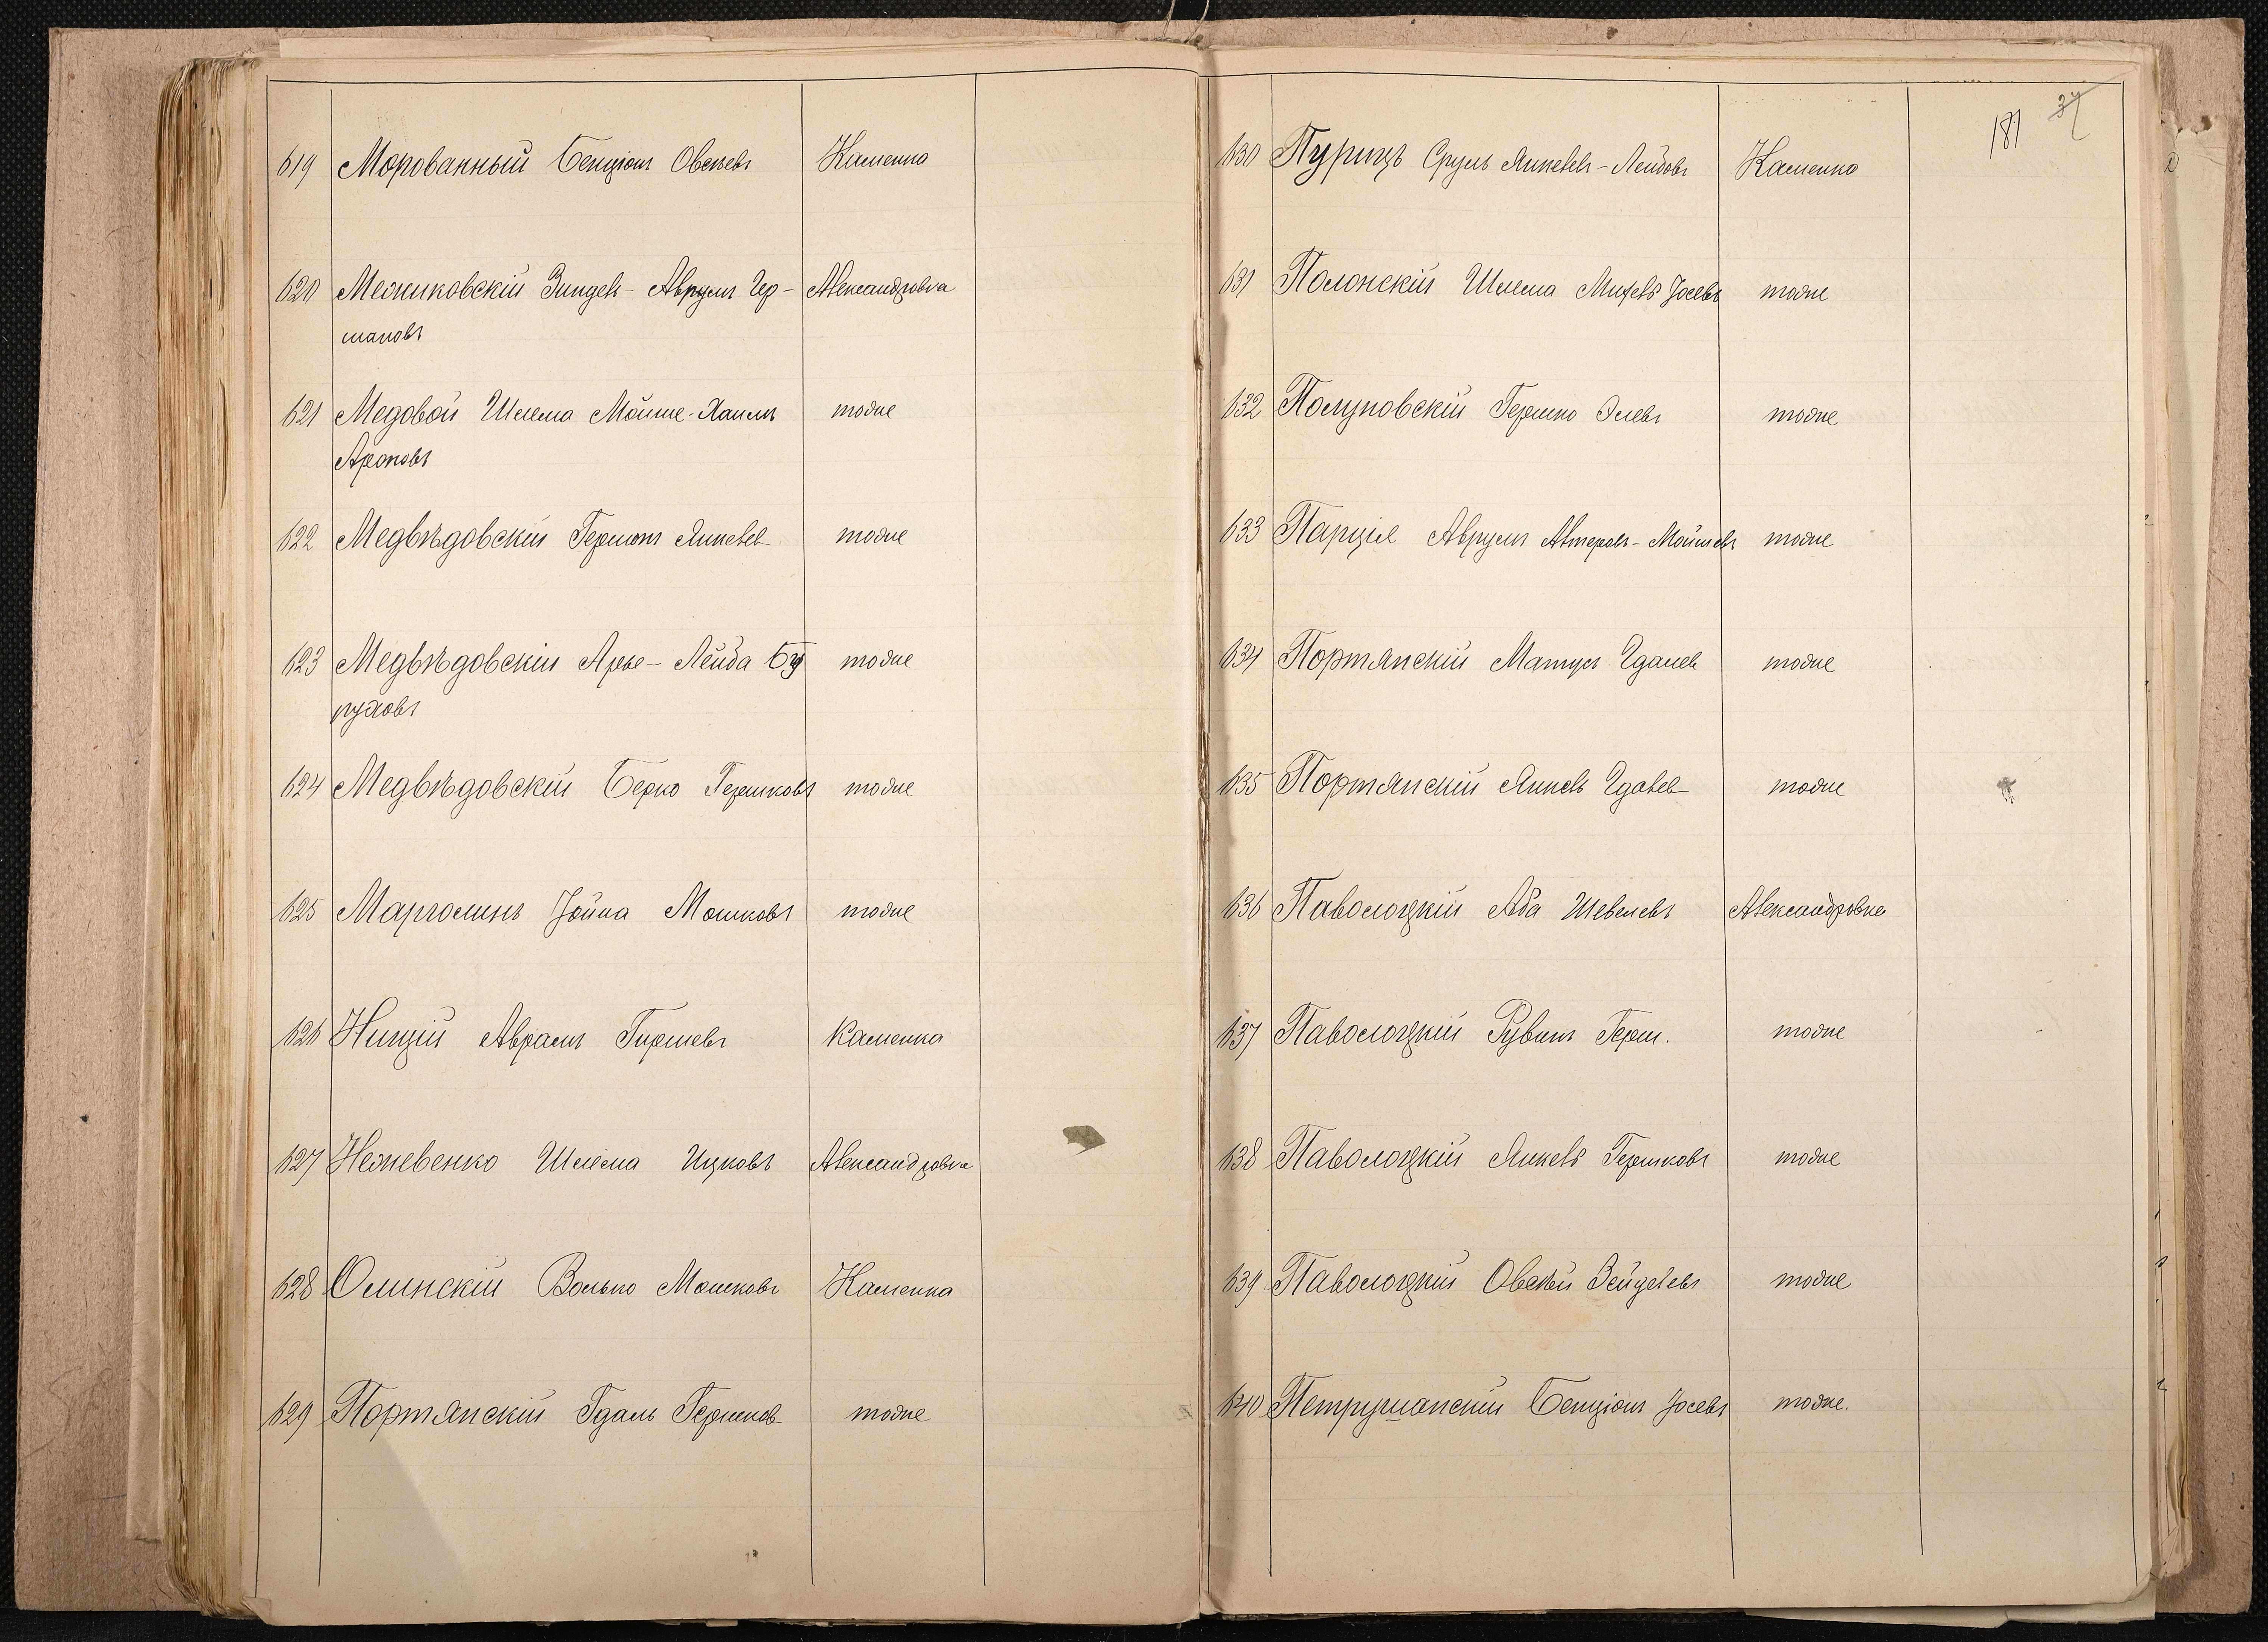 619 Морованный Бенціонъ Овсѣевъ Каменка
620 Межиковскій Зинделъ- Аврумъ Гер- Александровка
шановъ
621 Медовой Шлема Мойше-Хаимъ тоже
Ароновъ
622 Медвѣдовскій Гершонъ Янкелев тоже
623 Медвѣдовскій Арье- Лейба Бу тоже
руховъ
624 Медвѣдовскій Берко Гершковъ тоже
625 Марголинъ Іойна Мошковъ тоже
626 Ницій Аврамъ Гиршевъ Каменка
627 Нежевенко Шлема Ицковъ Александровка
628 Олинскій Волько Мошковъ Каменка
629 Портянскій Гдаль Гершков тоже
181 37
630 Пурицъ Сруль Янкелев-Лейбовъ Каменка
631 Полонскій Шлема Михель Іосевъ тоже
632 Полуновскій Гершко Элевъ тоже
633 Парціе Аврумъ Алтеровъ-Мойшевъ тоже
634 Портянскій Матусъ Гдалев тоже
635 Портянскій Янкель Гдалев тоже
636 Паволоцкій Аба Шевелевъ Александровка
637 Паволоцкій Рувинъ Герш. тоже
638 Паволоцкій Янкель Гершковъ тоже
639 Паволоцкій Овсѣй Зейделевъ тоже
640 Петрушанскій Бенціонъ Іосевъ тоже.